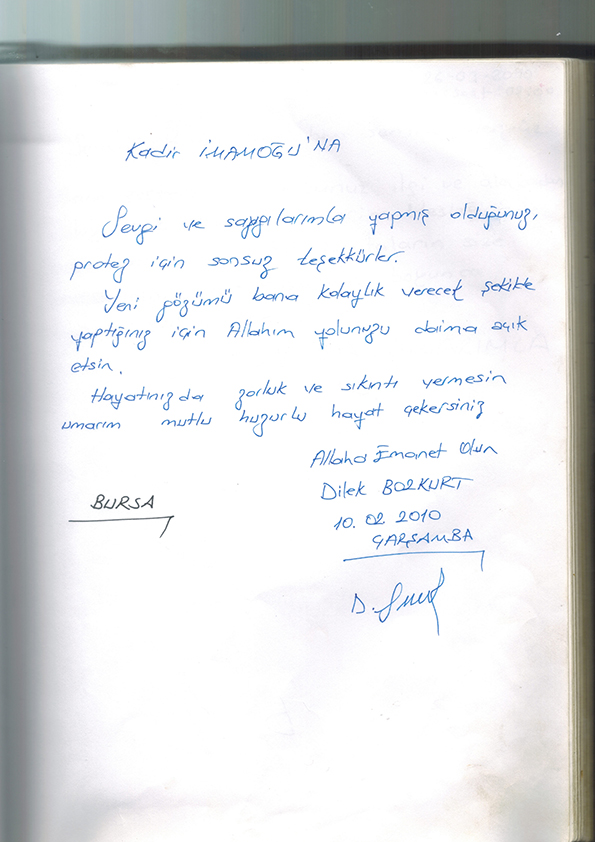 Kadir İMAMOĞU'NA
Sevgi ve saygılarımla yapmış olduğunuz,
protez için sonsuz teşekkürler.
Yeni gözümü bana kolaylık verecek şekilde
yaptığınız için Allahım yolunuzu daima açık
etsin.
Hayatınızda zorluk ve sıkıntı vermesin
umarım mutlu huzurlu hayat çekersiniz
Allaha Emanet Olun
Dilek BOZKURT
BURSA
10.02.2010
ÇARŞAMBA